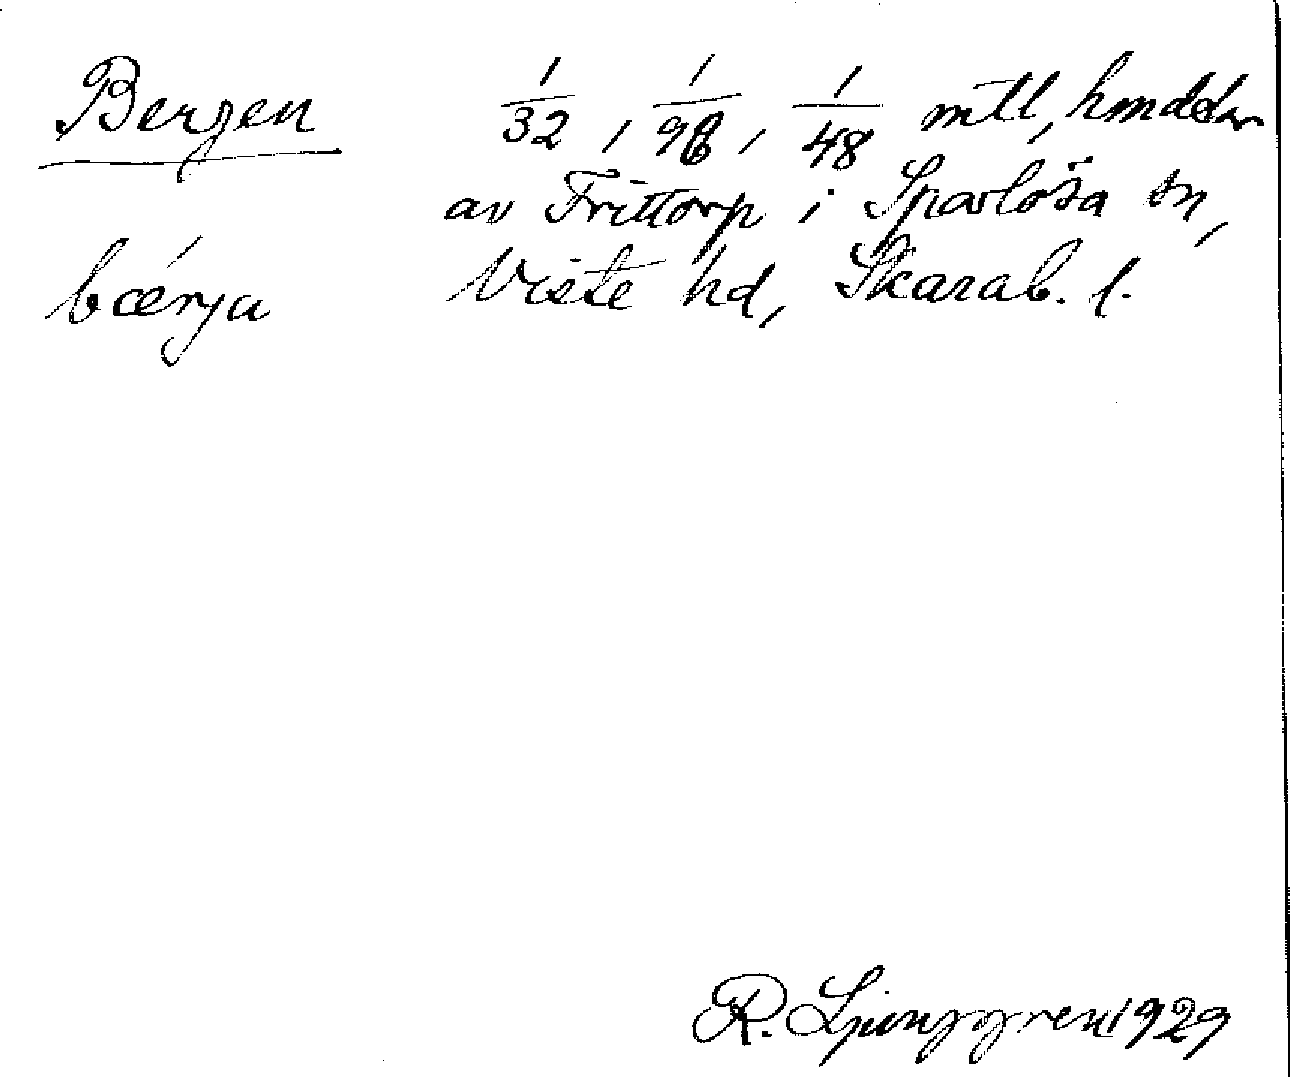 Bergen 1/32, 1/96, 1/48 mtl, hmddr
av Frittorp i Sparlösa sn,
bærja Viste hd, Skarab. l.
R. Ljunggren 1929